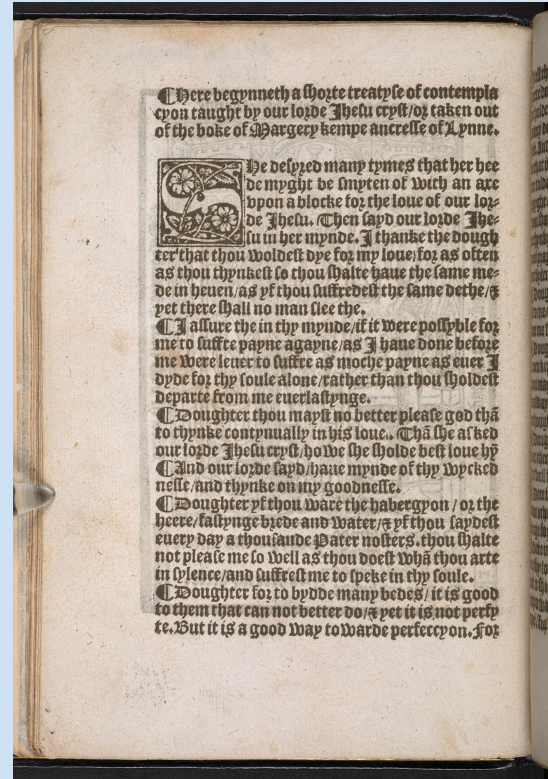 ¶Here begynneth a shorte treatyse of contempla
cyon taught by our lorde Jhesu cryst/or taken out
of the boke of Margery kempe ancresse of Lynne.
SHe desyred many tymes that her hee
de myght be smyten of with an axe
vpon a blocke for the loue of our lor⸗
de Jhesu. Then sayd our lorde Jhe⸗
su in her mynde. I thanke the dough
ter that thou woldest dye for my loue/for as often
as thou thynkest so thou shalte haue the same me⸗
de in heuen/as yf thou suffredest the same dethe/⁊
yet there shall no man slee the.
¶I assure the in thy mynde/if it were possyble for
me to suffre payne agayne/as I haue done before
me were leuer to suffre as moche payne as euer I
dyde for thy soule alone/rather than thou sholdest
departe from me euerlastynge.
¶Doughter thou mayst no better please god thā
to thynke contynually in his loue. Thā she asked
our lorde Jhesu cryst/howe she sholde best loue hȳ
¶And our lorde sayd/haue mynde of thy wycked
nesse/and thynke on my goodnesse.
¶Doughter yf thou ware the habergyon/or the
heere/fastynge brede and water/⁊ yf thou saydest
euery day a thousaude Pater nosters. thou shalte
not please me so well as thou doest whā thou arte
in sylence/and suffrest me to speke in thy soule.
¶Doughter for to bydde many bedes/it is good
to them that can not better do/⁊ yet it is not perfy
te. But it is a good way towarde perfeccyon. For